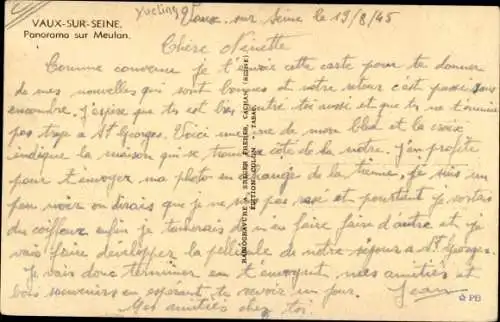 VAUX-SUR-SEINE.
Panorama sur Meulan.
Vaux sur Seine le 19/8/45
Chère Nénette
Comme convenu je t'envoie cette carte pour te donner
de mes nouvelles qui sont bonnes et notre retour s'est passé sans
encombre. J'espère que tu est bien rentré toi aussi et que tu ne t'ennuie
pas trop à St Georges. Voici une vue de mon bled et la croix
indique la maison qui se trouve à côté de la notre. J'en profite
pour t'envoyer ma photo en échange de la tienne, je suis un
peu noir on dirais que je ne suis pas rasé et pourtant je sortais
du coiffeur enfin je tacherais de m'en faire faire d'autre et je
vais faire développer la pellicule de notre séjour à St Georges
Je vais donc terminer en t'envoyant mes amitiés et
bons souvenirs en espérant te revoir un jour. Jean
Mes amitiés chez toi
RADIOGRAVURE BREGER FRERES, CACHAN (SEINE)
EDITIONS TABAC
PB